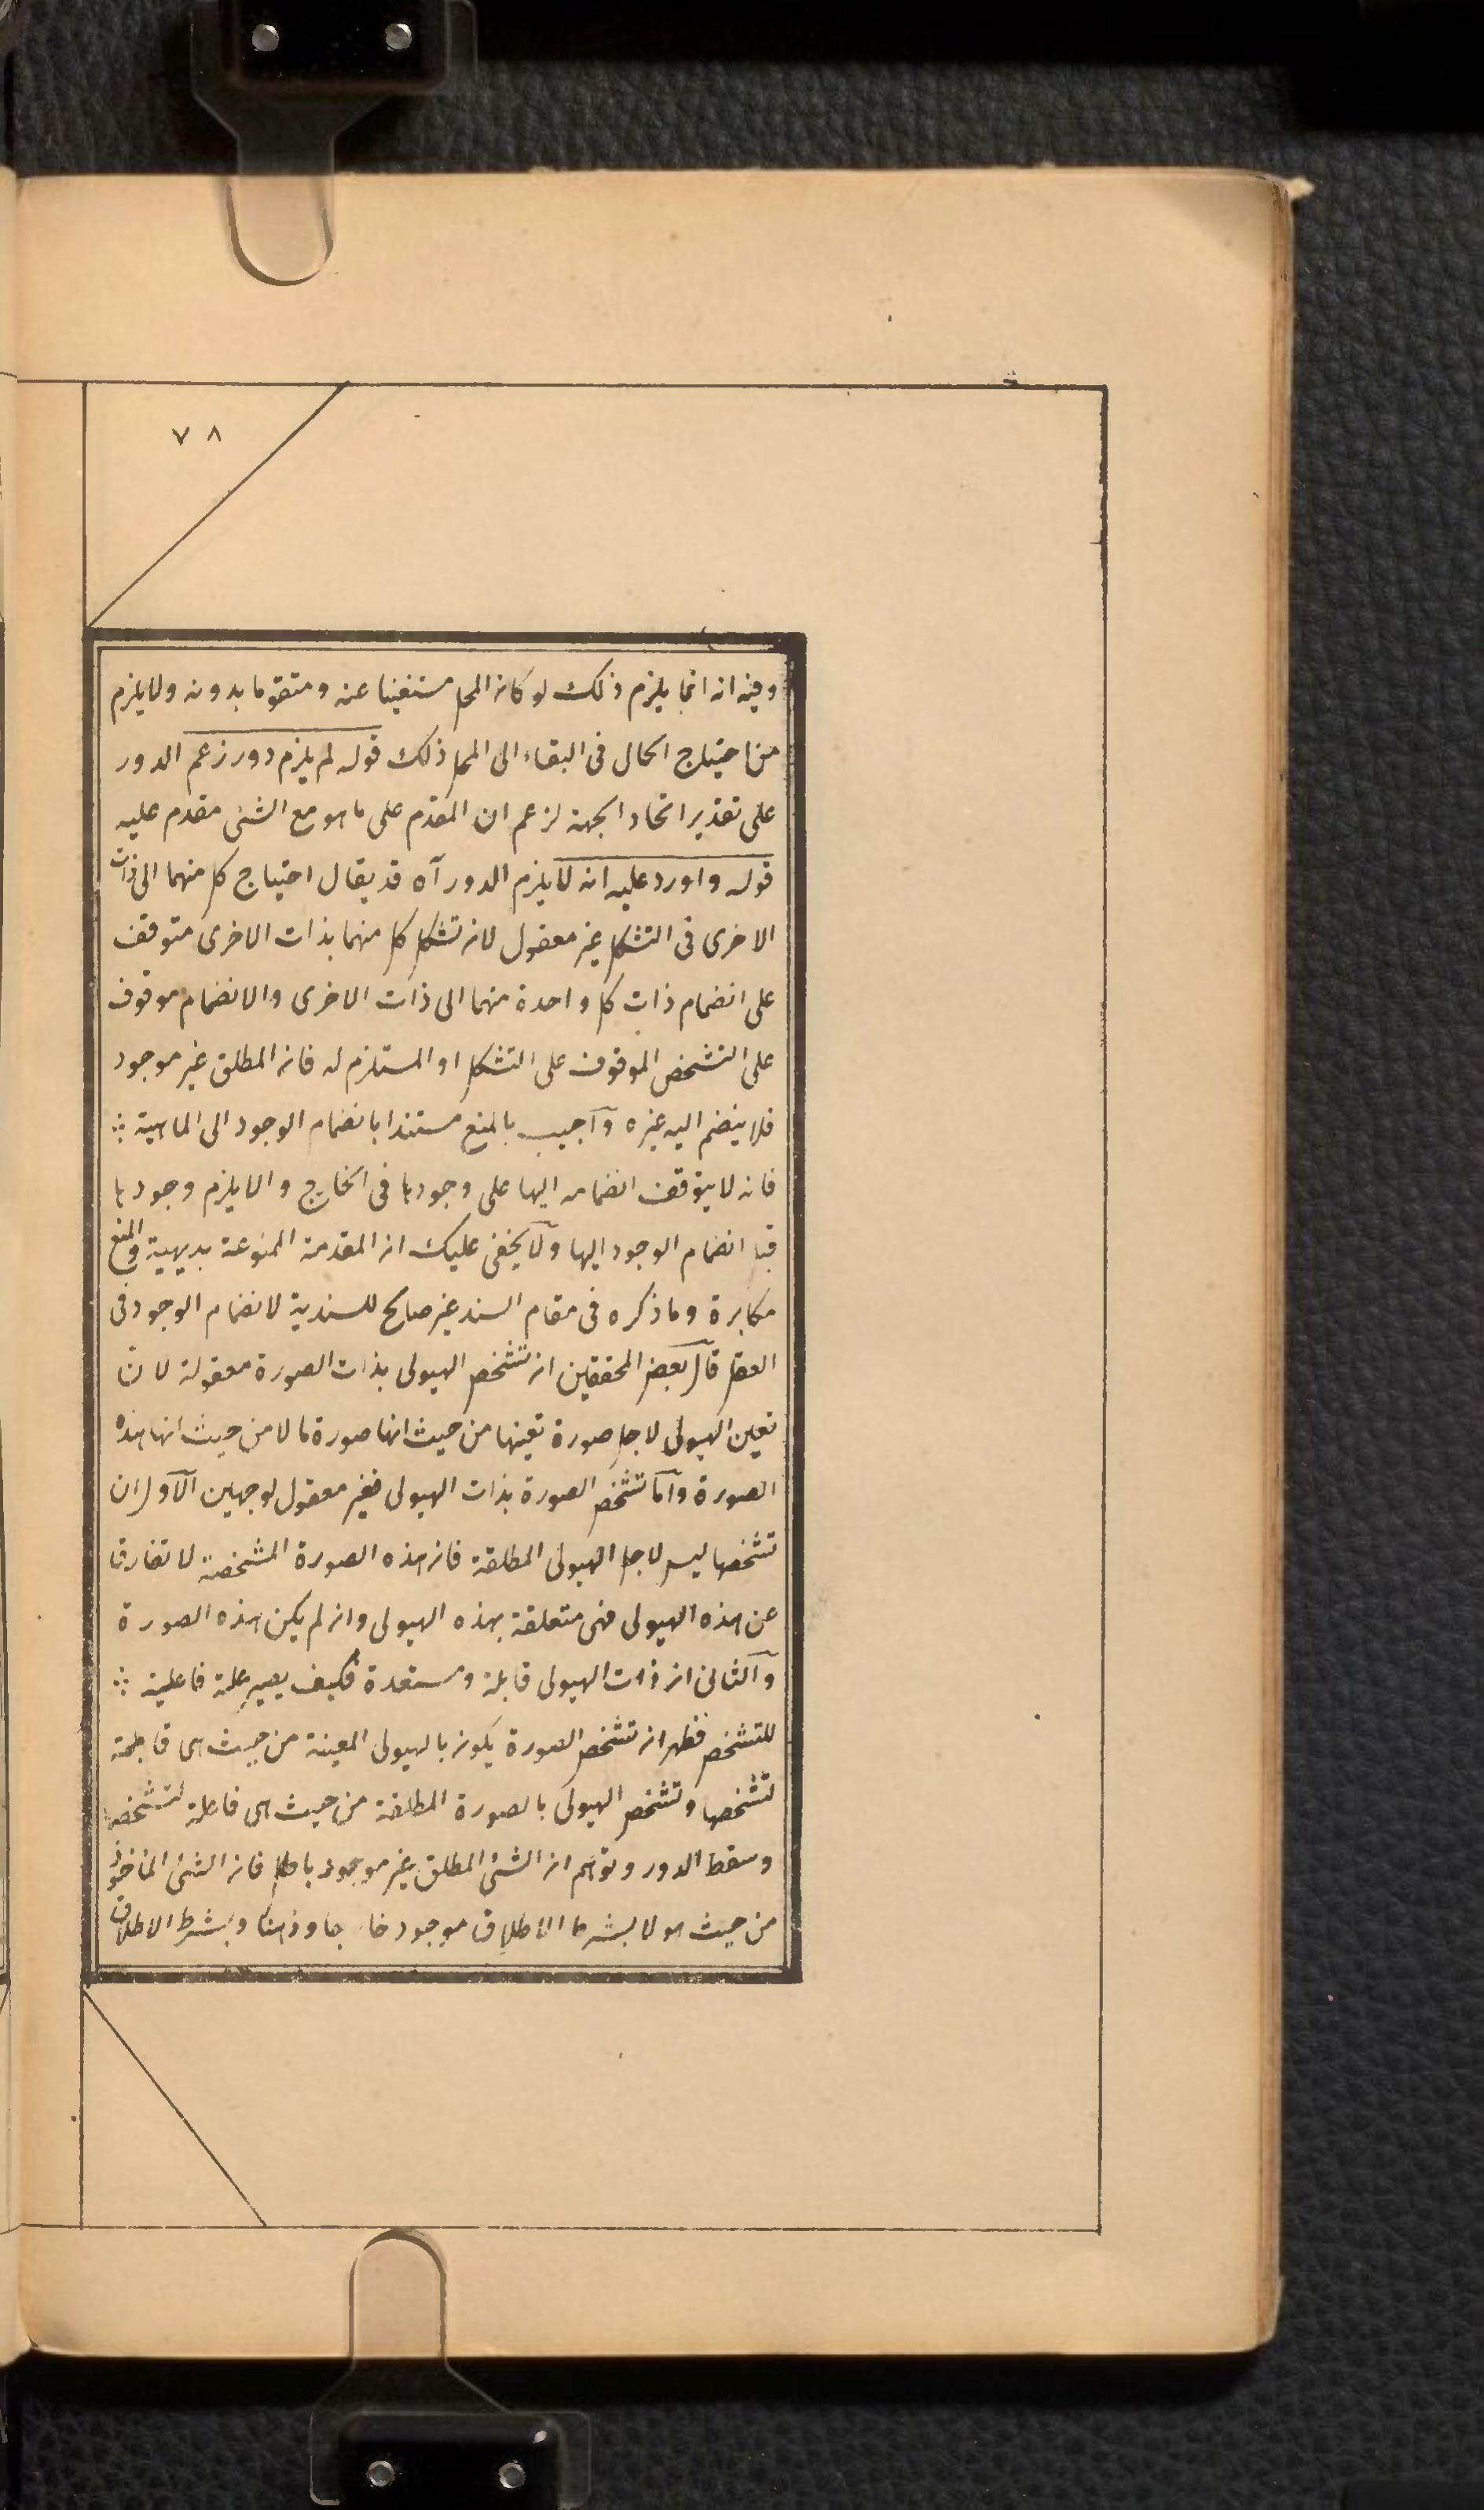 ٧٨
وفيه انه انما يلزم ذلك لو كان المحل مستغنيا عنه ومتقوما بدونه ولا يلزم
من احتياج الحال فى البقاء الى المحل ذلك قوله لم يلزم دور زعم الدور
على تقدير اتحاد الجهة لزعم ان المقدم على ما هو مع الشئ مقدم عليه
قوله واورد عليه انه لا يلزم الدور آه قد يقال احتياج كل منهما الى ذات
الاخرى فى التشكل غير معقول لان تشكل كل منهما بذات الاخرى متوقف
على انضمام ذات كل واحدة منهما الى ذات الاخرى والانضمام موقوف
على التشخص الموقوف على التشكل او المستلزم له فان المطلق غير موجود
فلا ينضم اليه غيره وآجيب بالمنع مستندا بانضمام الوجود الى الماهية ∴
فانه لا يتوقف انضمامه اليها على وجودها فى الخارج والا يلزم وجودها
قبل انضمام الوجود اليها ولا يخفى عليك ان المقدمة الممنوعة بديهية والمنع
مكابرة وما ذكره فى مقام السند غير صالح للسندية لانضمام الوجود فى
العقل قال بعض المحققين ان تشخص الهيولى بذات الصورة معقولة لانّ
تعين الهيولى لاجل صورة تعينها من حيث انها صورة ما لا من حيث انها هذه
الصورة وآما تشخص الصورة بذات الهيولى فغير معقول لوجهين الآول ان
تشخصها ليس لاجل الهيولى المطلقة فان هذه الصورة المشخصة لا تفارق
عن هذه الهيولى فهى متعلقة بهذه الهيولى وان لم يكن هذه الصورة
وآلثانى ان ذات الهيولى قابلة ومستعدة فكيف يصير علة فاعلية ∴
للتشخص فظهر ان تشخص الصورة يكون بالهيولى المعينة من حيث هى قابلة
لتشخصها وتشخص الهيولى بالصورة المطلقة من حيث هى فاعلة لتشخصها
وسقط الدور وتوهم ان الشئ المطلق غير موجود باطل فان الشئ المأخوذ
من حيث هو لا بشرط الاطلاق موجود خارجا وذهنا وبشرط الاطلاق